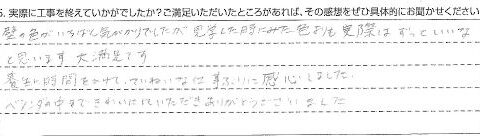 5. 実際に工事を終えていかがでしたか？ご満足いただいたところがあれば、その感想をぜひ具体的にお聞かせください
壁の色がいちばん気がかりでしたが見学した時にみた色よりも実際はずっといいな
と思います 大満足です
養生に時間をかけて、ていねいな仕事ぶりに感心しました
ベランダの中まできれいにしていただきありがとうございました